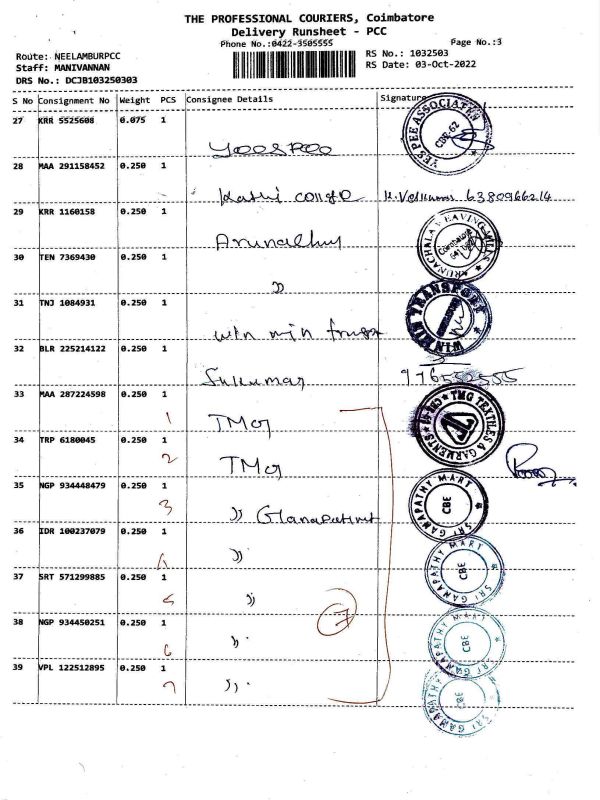 THE PROFESSIONAL COURIERS, Coimbatore
Delivery Runsheet - PCC
Phone No.:0422-3505555
Page No.:3
Route: NEELAMBURPCC
RS No.: 1032503
Staff: MANIVANNAN
RS Date: 03-Oct-2022
DRS No.: DCJB103250303
S No Consignment No Weight PCS Consignee Details Signature
27 KRR 5525608 0.075 1
YES PEE ASSOCIATES
CBE-62
28 MAA 291158452 0.250 1
6380966214
29 KRR 1160158 0.250 1
ARUNACHALA WEAVING MILLS
Coimbatore
30 TEN 7369430 0.250 1
"
31 TNJ 1084931 0.250 1
win min
WIN MIN TRANSPORT
32 BLR 225214122 0.250 1
Sukumar
33 MAA 287224598 0.250 1
1 TMG
TMG TEXTILES & GARMENTS
34 TRP 6180045 0.250 1
2 TMG
35 NGP 934448479 0.250 1
3 "
SRI GANAPATHY MART
CBE
36 IDR 100237079 0.250 1
"
SRI GANAPATHY MART
CBE
37 SRT 571299885 0.250 1
5 "
7
38 NGP 934450251 0.250 1
6 "
SRI GANAPATHY MART
CBE
39 VPL 122512895 0.250 1
7 "
SRI GANAPATHY MART
CBE